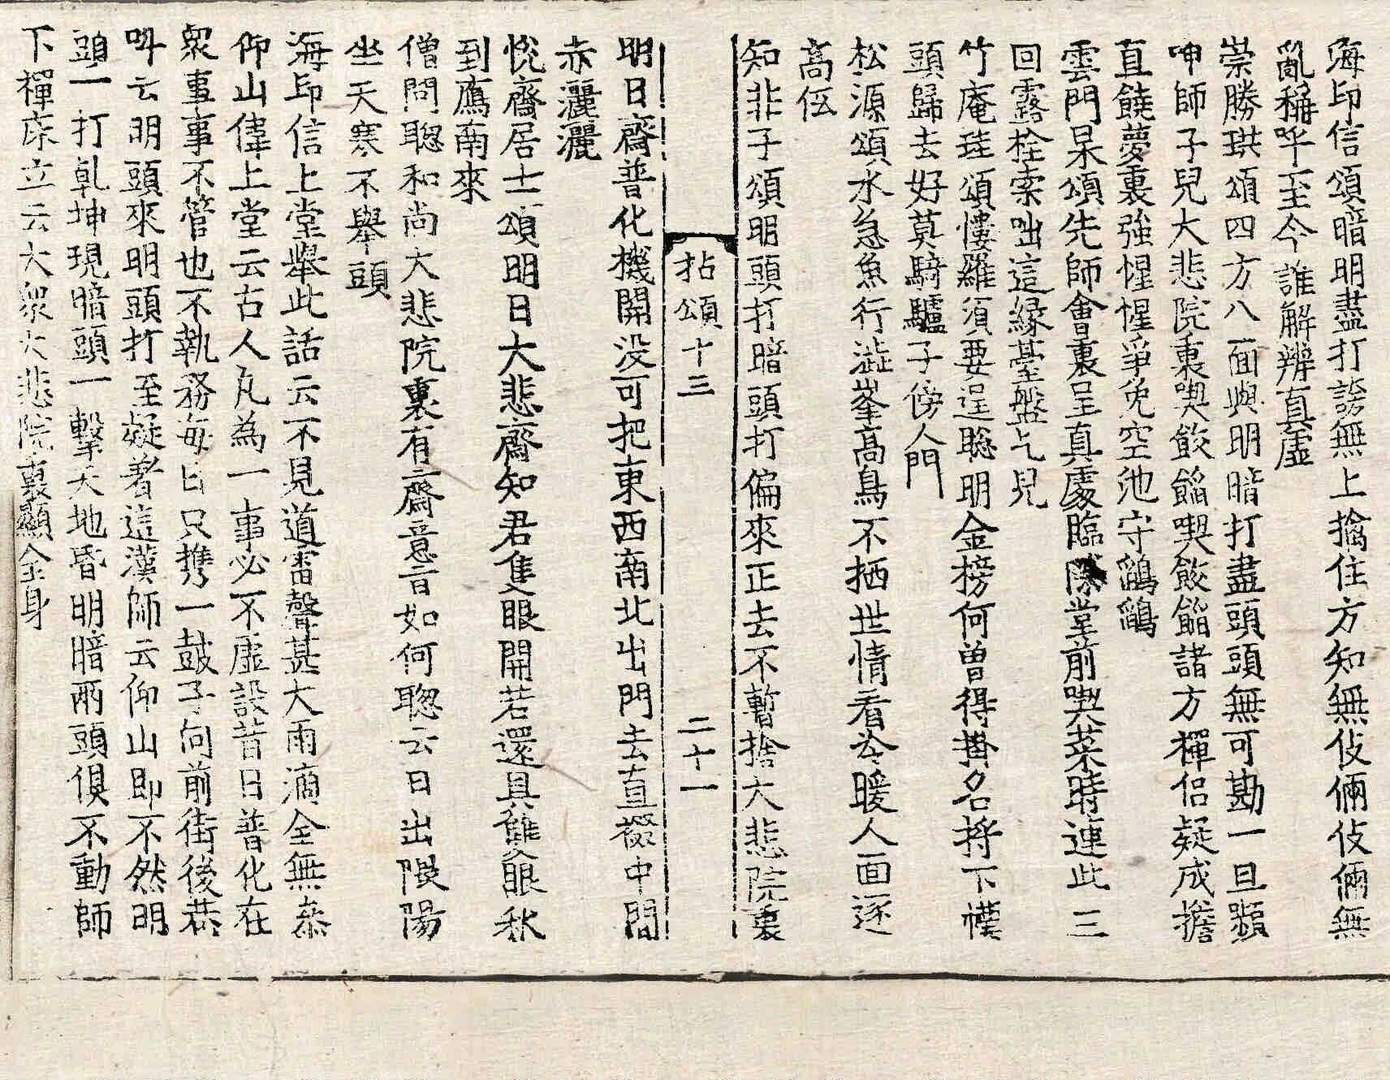 海印信頌暗明盡打謗無上擒住方知無伎倆伎倆無
亂稱呼至今誰解辨真虛
崇勝珙頌四方八面與明暗打盡頭頭無可勘一旦顙
呻師子兒大悲院裏喫餕餡喫餕餡諸方禪侶疑成擔
直饒夢裏強惺惺爭免空池守鷭鷭
雲門杲頌先師會裏呈真處臨際堂前喫菜時連此三
回露柱索咄這緣薹盤乞兒
竹庵珪頌慺羅須要逞聡明金榜何曾得掛名捋下幞
頭歸去好莫騎驢子傍人門
松源頌水急魚行澁峯高鳥不栖世情看冷暖人面逐
高伍
知非子頌明頭打暗頭打偏來正去不暫捨大悲院裏
拈頌十三 二十一
明日齋普化機開没可把東西南北出門去直裰中間
赤灑灑
恱齋居士頌明日大悲齋知君隻眼開若還具雙眼秋
到鴈南來
僧問聦和尚大悲院裏有齋意旨如何聦云日出隈陽
坐天寒不舉頭
海印信上堂舉此話云不見道雷聲甚大雨滴全無叅
仰山偉上堂云古人凡為一事必不虛設昔日普化在
衆事事不管也不執務每日只携一鼓子向前街後巷
呌云明頭來明頭打至疑著這漢師云仰山即不然明
頭一打乹坤現暗頭一擊天地昏明暗兩頭俱不動師
下禪床立云大衆大悲院裏顯全身